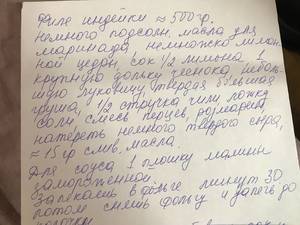 Филе индейки ≈ 500 гр.
Немного подсолн. масла для
маринада, немножко лимон-
ной цедры, сок 1/2 лимона 1
крупную дольку чеснока, неболь-
шую луковицу, твердая большая
груша, 1/2 стручка чили, ложка
соли, смесь перцев, розмарин
натереть немного твердого сыра,
≈ 15 гр слив. масла.
Для соуса 1 плошку малины
замороженной.
Запекаешь в фольге минут 30
потом снять фольгу и запечь до